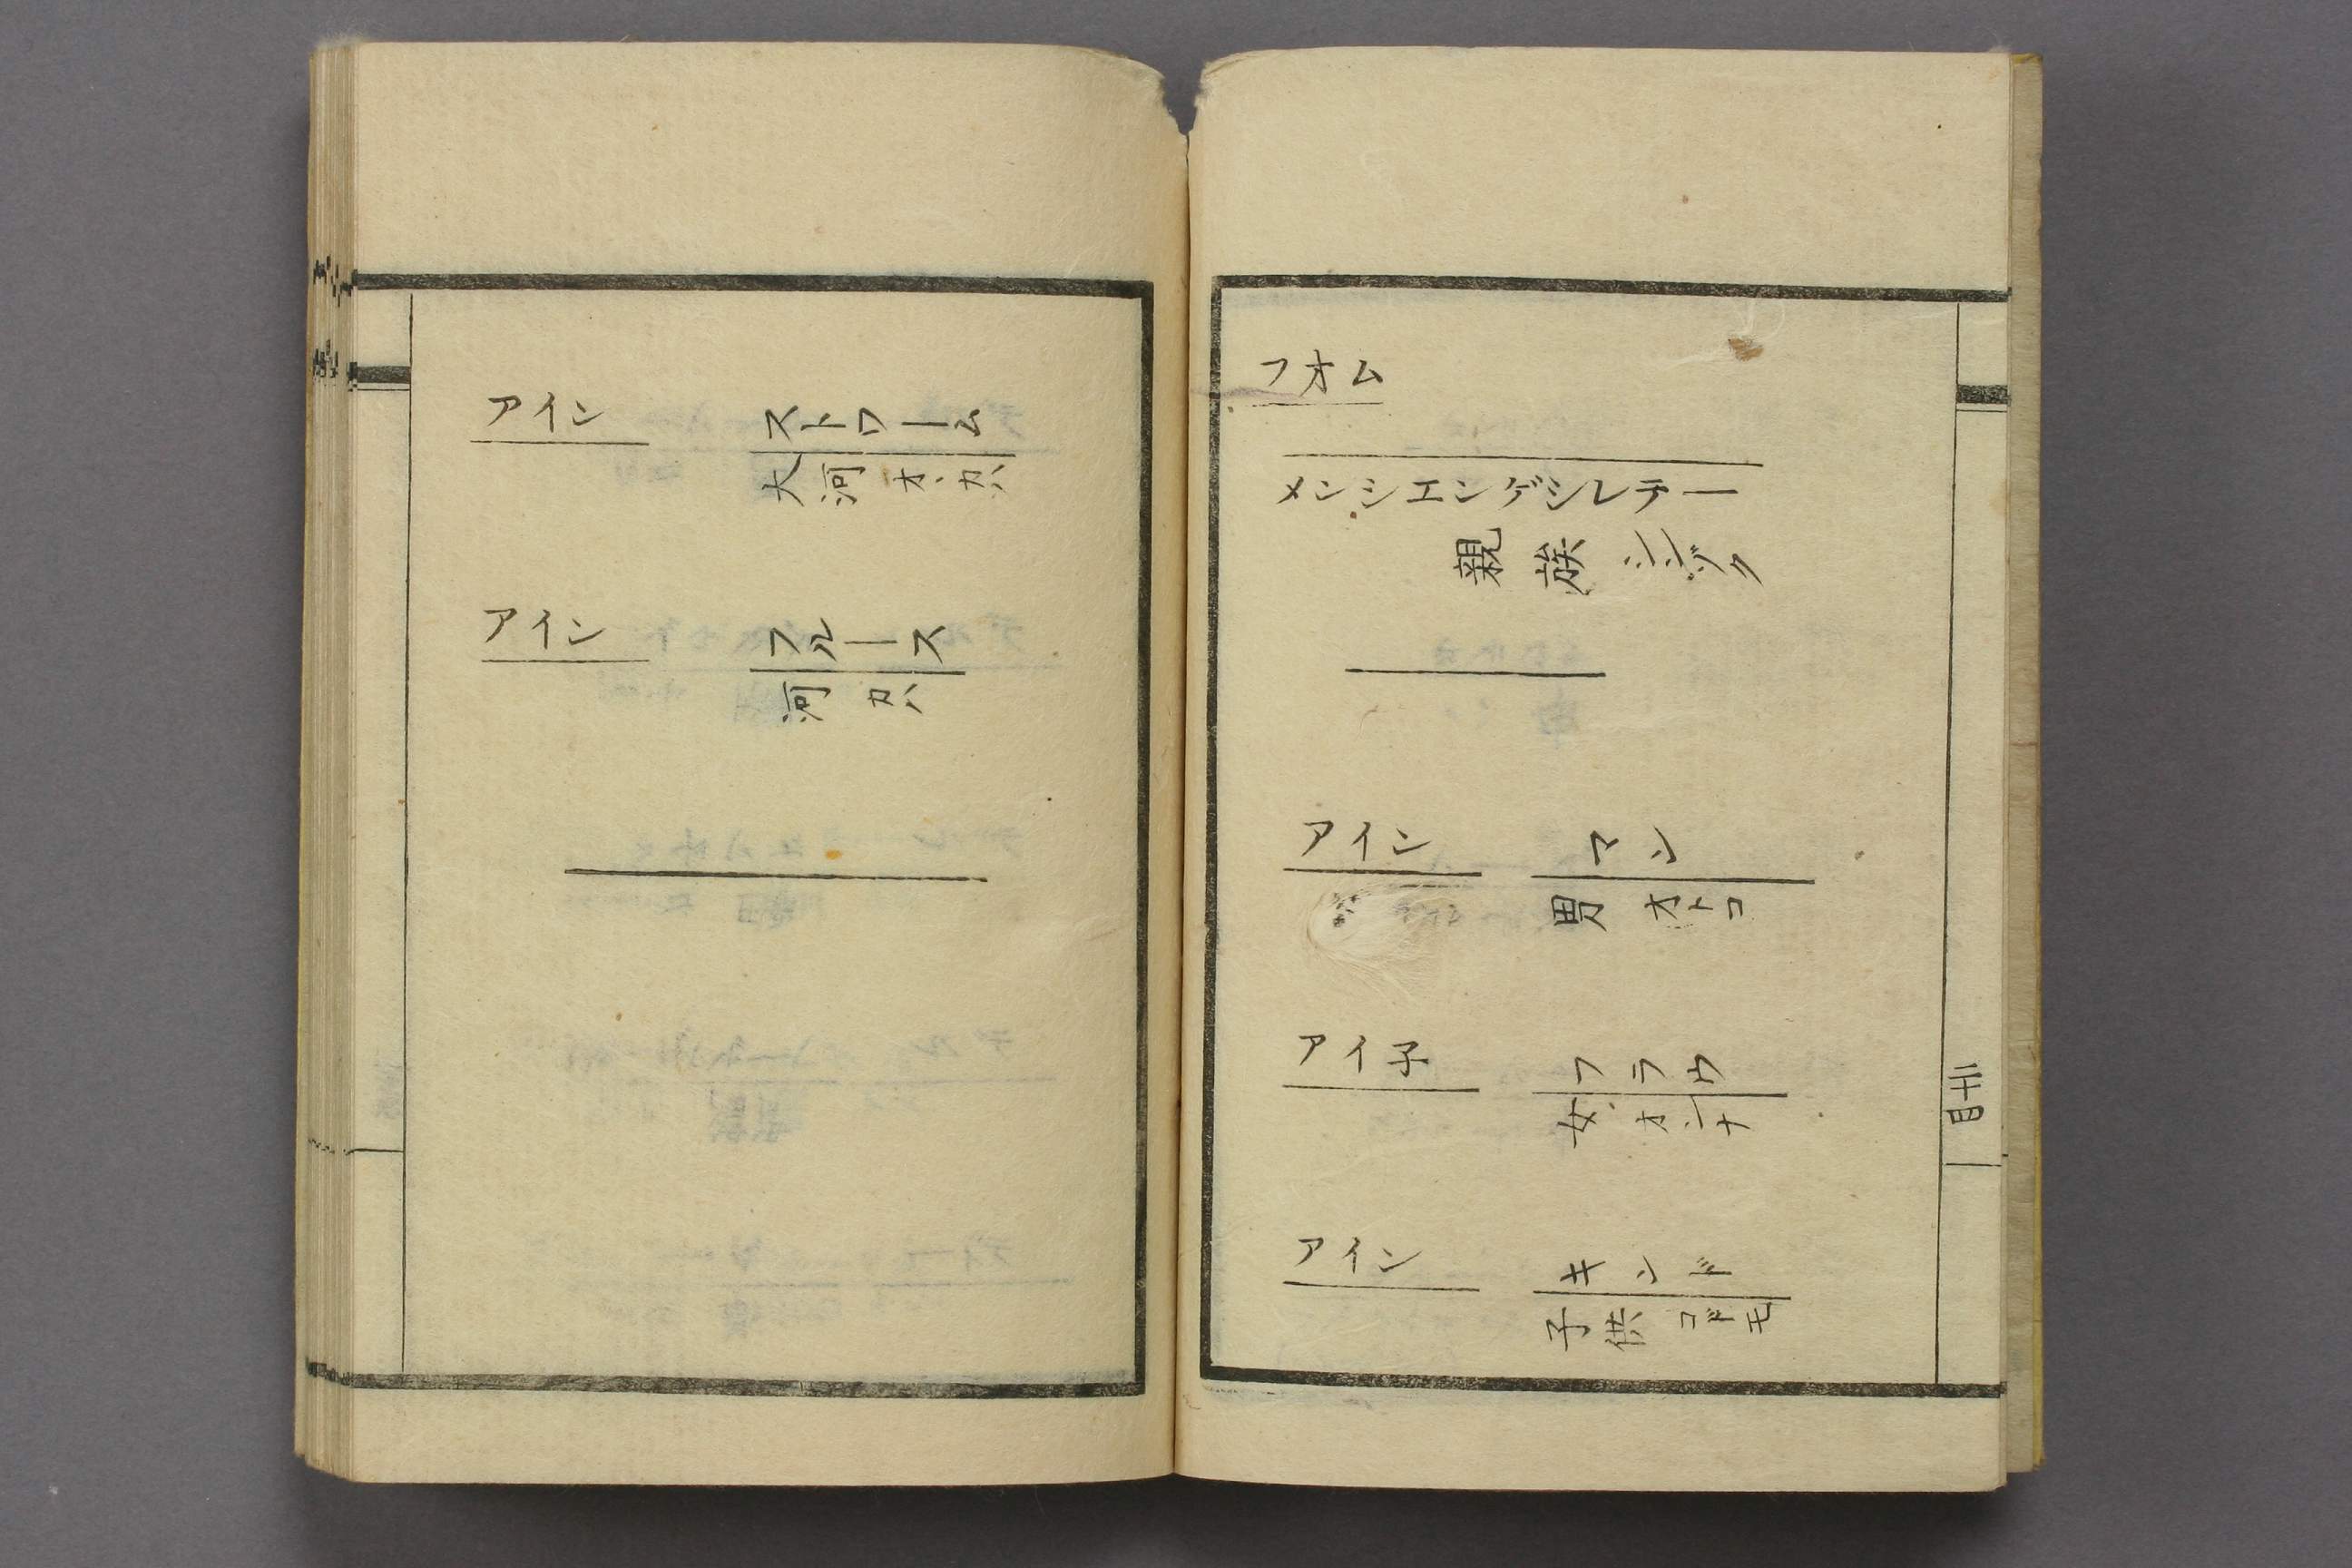 アイン ストローム
大河 オヽカハ
アイン フルース
河 カハ
フオム
メンシエンゲシレテー
親族 シンゾク
アイン マン
男 オトコ
アイ子 フラウ
女 オンナ
アイン キンド
子供 コドモ